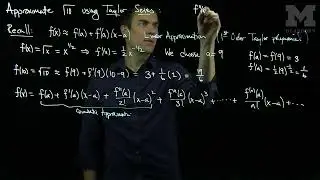 Approximate √10 using Taylor Series: f'(x)
Recall: f(x) ≈ f(a) + f'(a)(x-a) Linear Approximation 1st Order Taylor polynomial
f(x) = √x = x^1/2 → f'(x) = 1/2 x^-1/2 We choose a = 9 f(a) = f(9) = 3
f'(a) = 1/2 (9)^-1/2 = 1/6
f(10) = √10 ≈ f(9) + f'(9)(10-9) = 3 + 1/6 (1) = 19/6
f(x) = f(a) + f'(a)(x-a) + f''(a)/2! (x-a)^2 + f'''(a)/3! (x-a)^3 + ...... + f^(n)(a)/n! (x-a)^n + ...
Quadratic Approximation
M